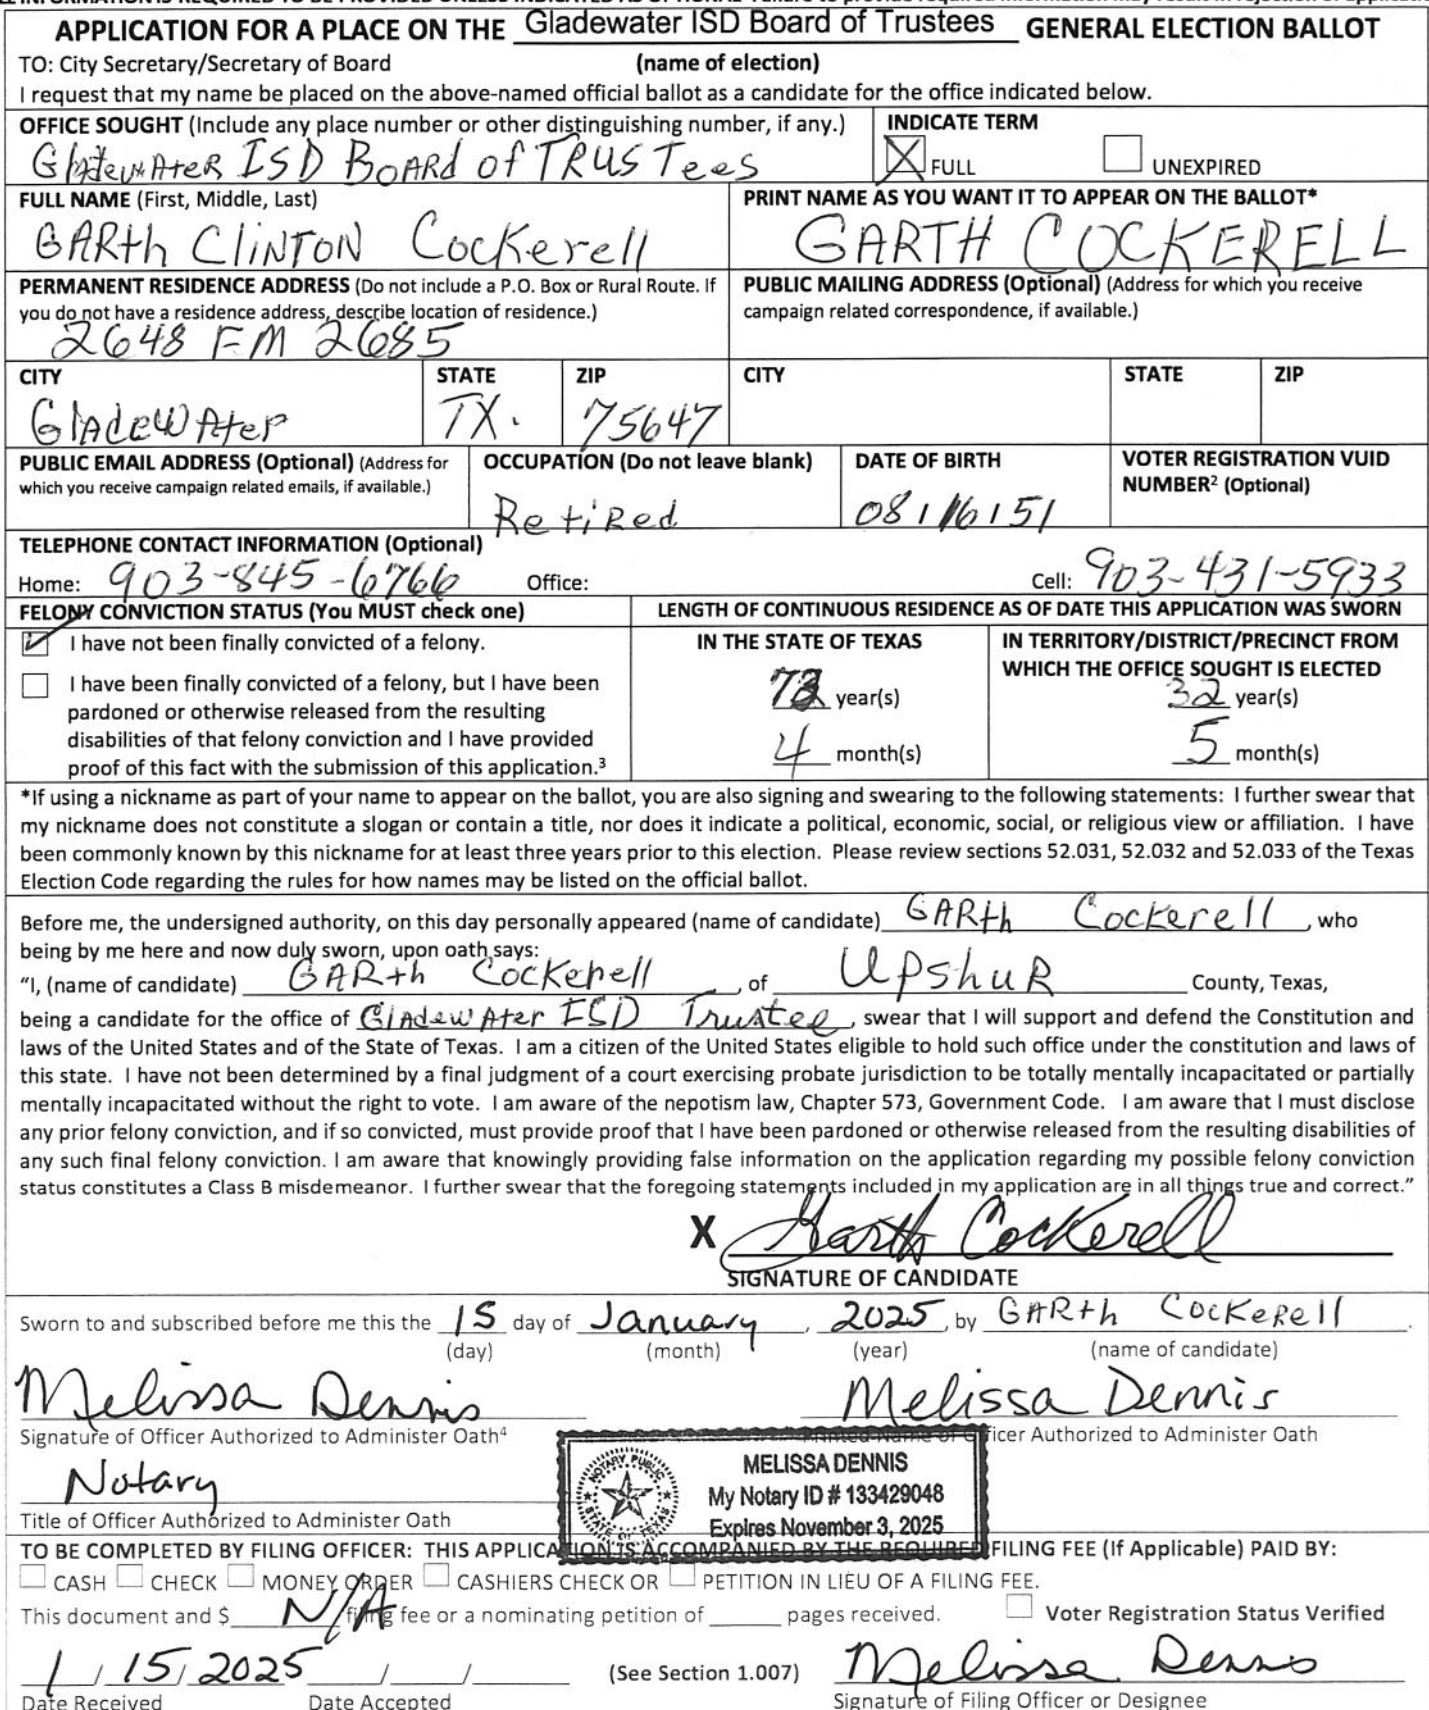 APPLICATION FOR A PLACE ON THE Gladewater ISD Board of Trustees GENERAL ELECTION BALLOT
TO: City Secretary/Secretary of Board (name of election)
I request that my name be placed on the above-named official ballot as a candidate for the office indicated below.
OFFICE SOUGHT (Include any place number or other distinguishing number, if any.) INDICATE TERM
GlAdewAter ISD BoARd of TRUSTees FULL UNEXPIRED
FULL NAME (First, Middle, Last) PRINT NAME AS YOU WANT IT TO APPEAR ON THE BALLOT*
GARth ClINTON Cockerell GARTH COCKERELL
PERMANENT RESIDENCE ADDRESS (Do not include a P.O. Box or Rural Route. If PUBLIC MAILING ADDRESS (Optional) (Address for which you receive
you do not have a residence address, describe location of residence.) campaign related correspondence, if available.)
2648 FM 2685
CITY STATE ZIP CITY STATE ZIP
GlAdewAter TX. 75647
PUBLIC EMAIL ADDRESS (Optional) (Address for OCCUPATION (Do not leave blank) DATE OF BIRTH VOTER REGISTRATION VUID
which you receive campaign related emails, if available.) NUMBER² (Optional)
RetiRed 08/16/51
TELEPHONE CONTACT INFORMATION (Optional)
Home: 903-845-6766 Office: Cell: 903-431-5933
FELONY CONVICTION STATUS (You MUST check one) LENGTH OF CONTINUOUS RESIDENCE AS OF DATE THIS APPLICATION WAS SWORN
I have not been finally convicted of a felony. IN THE STATE OF TEXAS IN TERRITORY/DISTRICT/PRECINCT FROM
WHICH THE OFFICE SOUGHT IS ELECTED
I have been finally convicted of a felony, but I have been year(s) 32 year(s)
pardoned or otherwise released from the resulting
disabilities of that felony conviction and I have provided 4 month(s) 5 month(s)
proof of this fact with the submission of this application.³
*If using a nickname as part of your name to appear on the ballot, you are also signing and swearing to the following statements: I further swear that
my nickname does not constitute a slogan or contain a title, nor does it indicate a political, economic, social, or religious view or affiliation. I have
been commonly known by this nickname for at least three years prior to this election. Please review sections 52.031, 52.032 and 52.033 of the Texas
Election Code regarding the rules for how names may be listed on the official ballot.
Before me, the undersigned authority, on this day personally appeared (name of candidate) GARth Cockerell, who
being by me here and now duly sworn, upon oath says:
"I, (name of candidate) GARth Cockerell, of UPShuR County, Texas,
being a candidate for the office of GlAdewAter ISD Trustee, swear that I will support and defend the Constitution and
laws of the United States and of the State of Texas. I am a citizen of the United States eligible to hold such office under the constitution and laws of
this state. I have not been determined by a final judgment of a court exercising probate jurisdiction to be totally mentally incapacitated or partially
mentally incapacitated without the right to vote. I am aware of the nepotism law, Chapter 573, Government Code. I am aware that I must disclose
any prior felony conviction, and if so convicted, must provide proof that I have been pardoned or otherwise released from the resulting disabilities of
any such final felony conviction. I am aware that knowingly providing false information on the application regarding my possible felony conviction
status constitutes a Class B misdemeanor. I further swear that the foregoing statements included in my application are in all things true and correct."
X Garth Cockerell
SIGNATURE OF CANDIDATE
Sworn to and subscribed before me this the 15 day of January, 2025, by GARth Cockerell.
(day) (month) (year) (name of candidate)
Melissa Dennis Melissa Dennis
Signature of Officer Authorized to Administer Oath⁴ Printed Name of Officer Authorized to Administer Oath
Notary
Title of Officer Authorized to Administer Oath
NOTARY PUBLIC STATE OF TEXAS
MELISSA DENNIS
My Notary ID # 133429048
Expires November 3, 2025
TO BE COMPLETED BY FILING OFFICER: THIS APPLICATION IS ACCOMPANIED BY THE REQUIRED FILING FEE (If Applicable) PAID BY:
CASH CHECK MONEY ORDER CASHIERS CHECK OR PETITION IN LIEU OF A FILING FEE.
This document and $ N/A filing fee or a nominating petition of ____ pages received. Voter Registration Status Verified
1/15/2025 / / (See Section 1.007) Melissa Dennis
Date Received Date Accepted Signature of Filing Officer or Designee